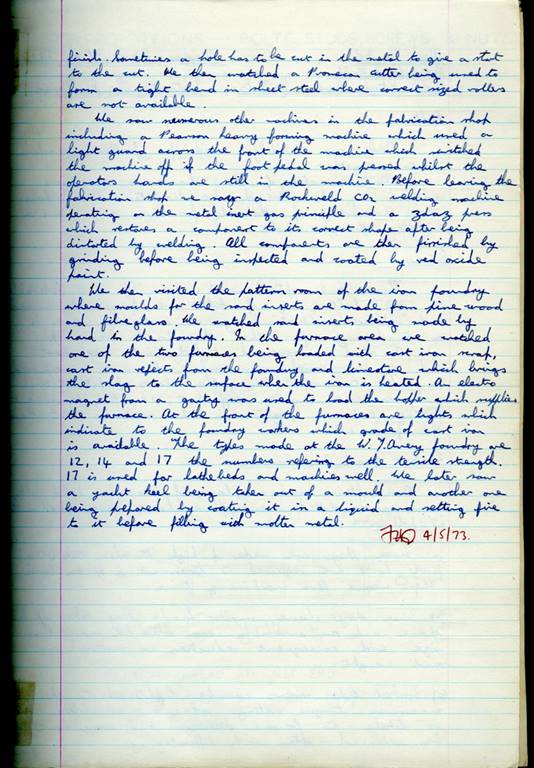 finish. Sometimes a hole has to be cut in the metal to give a start
to the cut. We then watched a cutter being used to
form a tight bend in sheet steel where correct sized rollers
are not available.
We saw numerous other machines in the fabrication shop
including a Pearson heavy forming machine which used a
light guard across the front of the machine which switched
the machine off if the foot pedal was pressed whilst the
operators hands are still in the machine. Before leaving the
fabrication shop we saw a Rockweld CO2 welding machine
operating on the metal inert gas principle and a press
which restores a component to its correct shape after being
distorted by welding. All components are then finished by
grinding before being inspected and coated by red oxide
paint.
We then visited the pattern room of the iron foundry
where moulds for the sand inserts are made from pine wood
and fibreglass. We watched sand inserts being made by
hand in the foundry. In the furnace area we watched
one of the two furnaces being loaded with cast iron scrap,
cast iron rejects from the foundry and limestone which brings
the slag to the surface when the iron is heated. An electro
magnet from a gantry was used to load the hopper which supplies
the furnace. At the front of the furnaces are lights which
indicate to the foundry workers which grade of cast iron
is available. The types made at the W. T. Avery foundry are
12, 14 and 17 the numbers refering to the tensile strength.
17 is used for lathe beds and machines well. We later saw
a yacht keel being taken out of a mould and another one
being prepared by coating it in a liquid and setting fire
to it before filling with molten metal.
4/5/73.